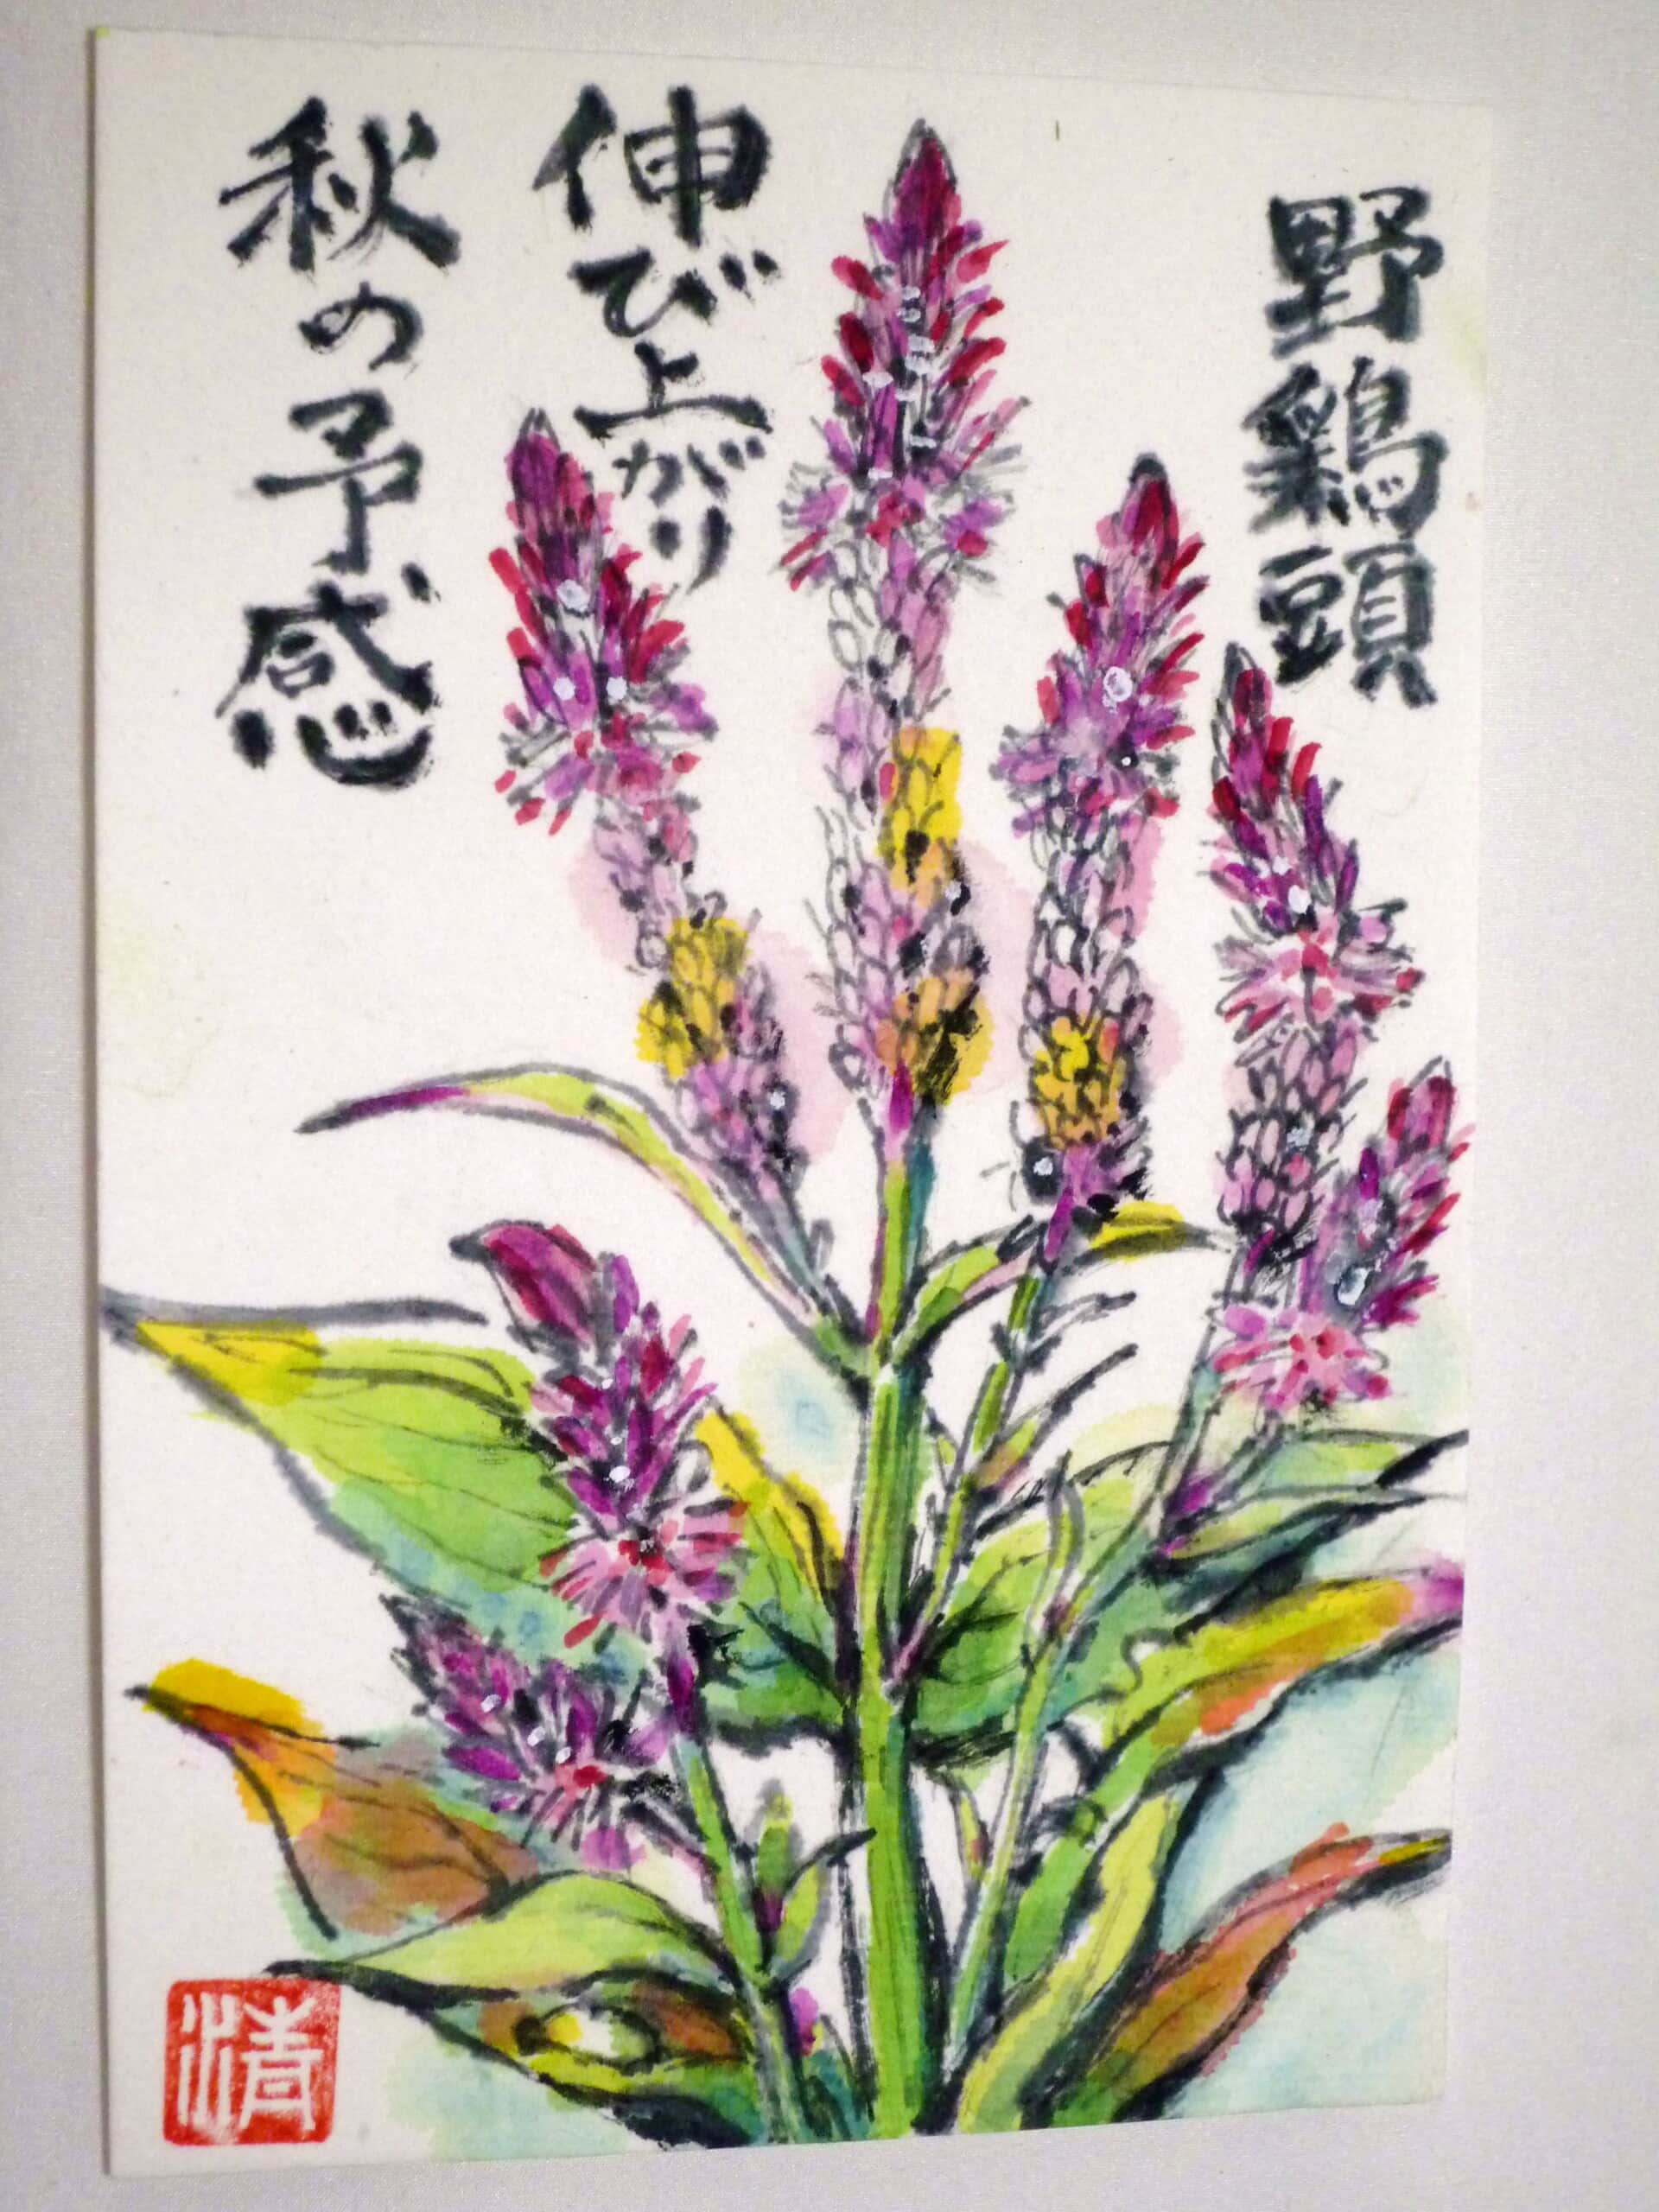 野鶏頭
伸び上がり
秋の予感
清